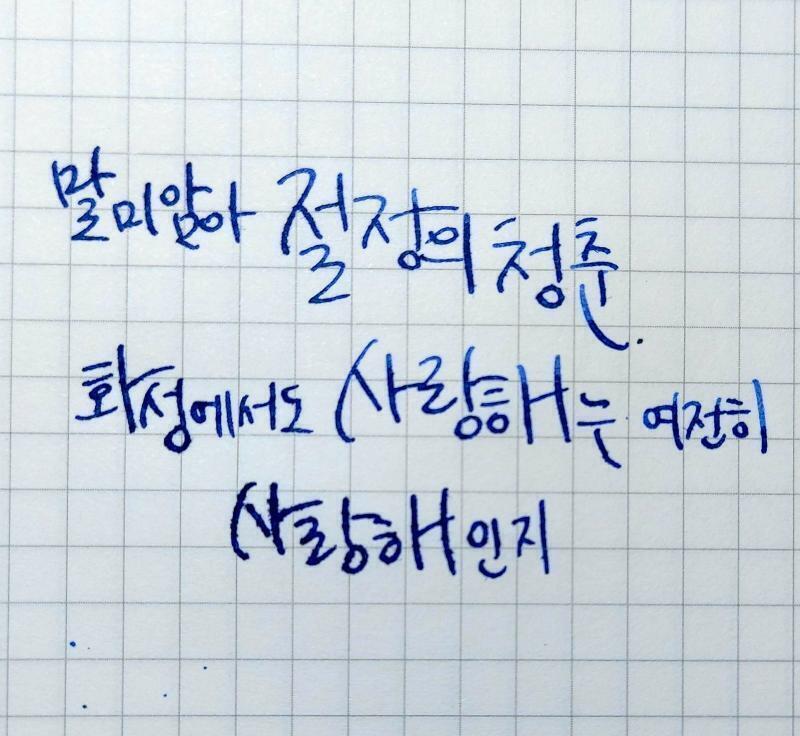 말미암아 절정의 청춘.
화성에서도 사랑해는 여전히
사랑해인지